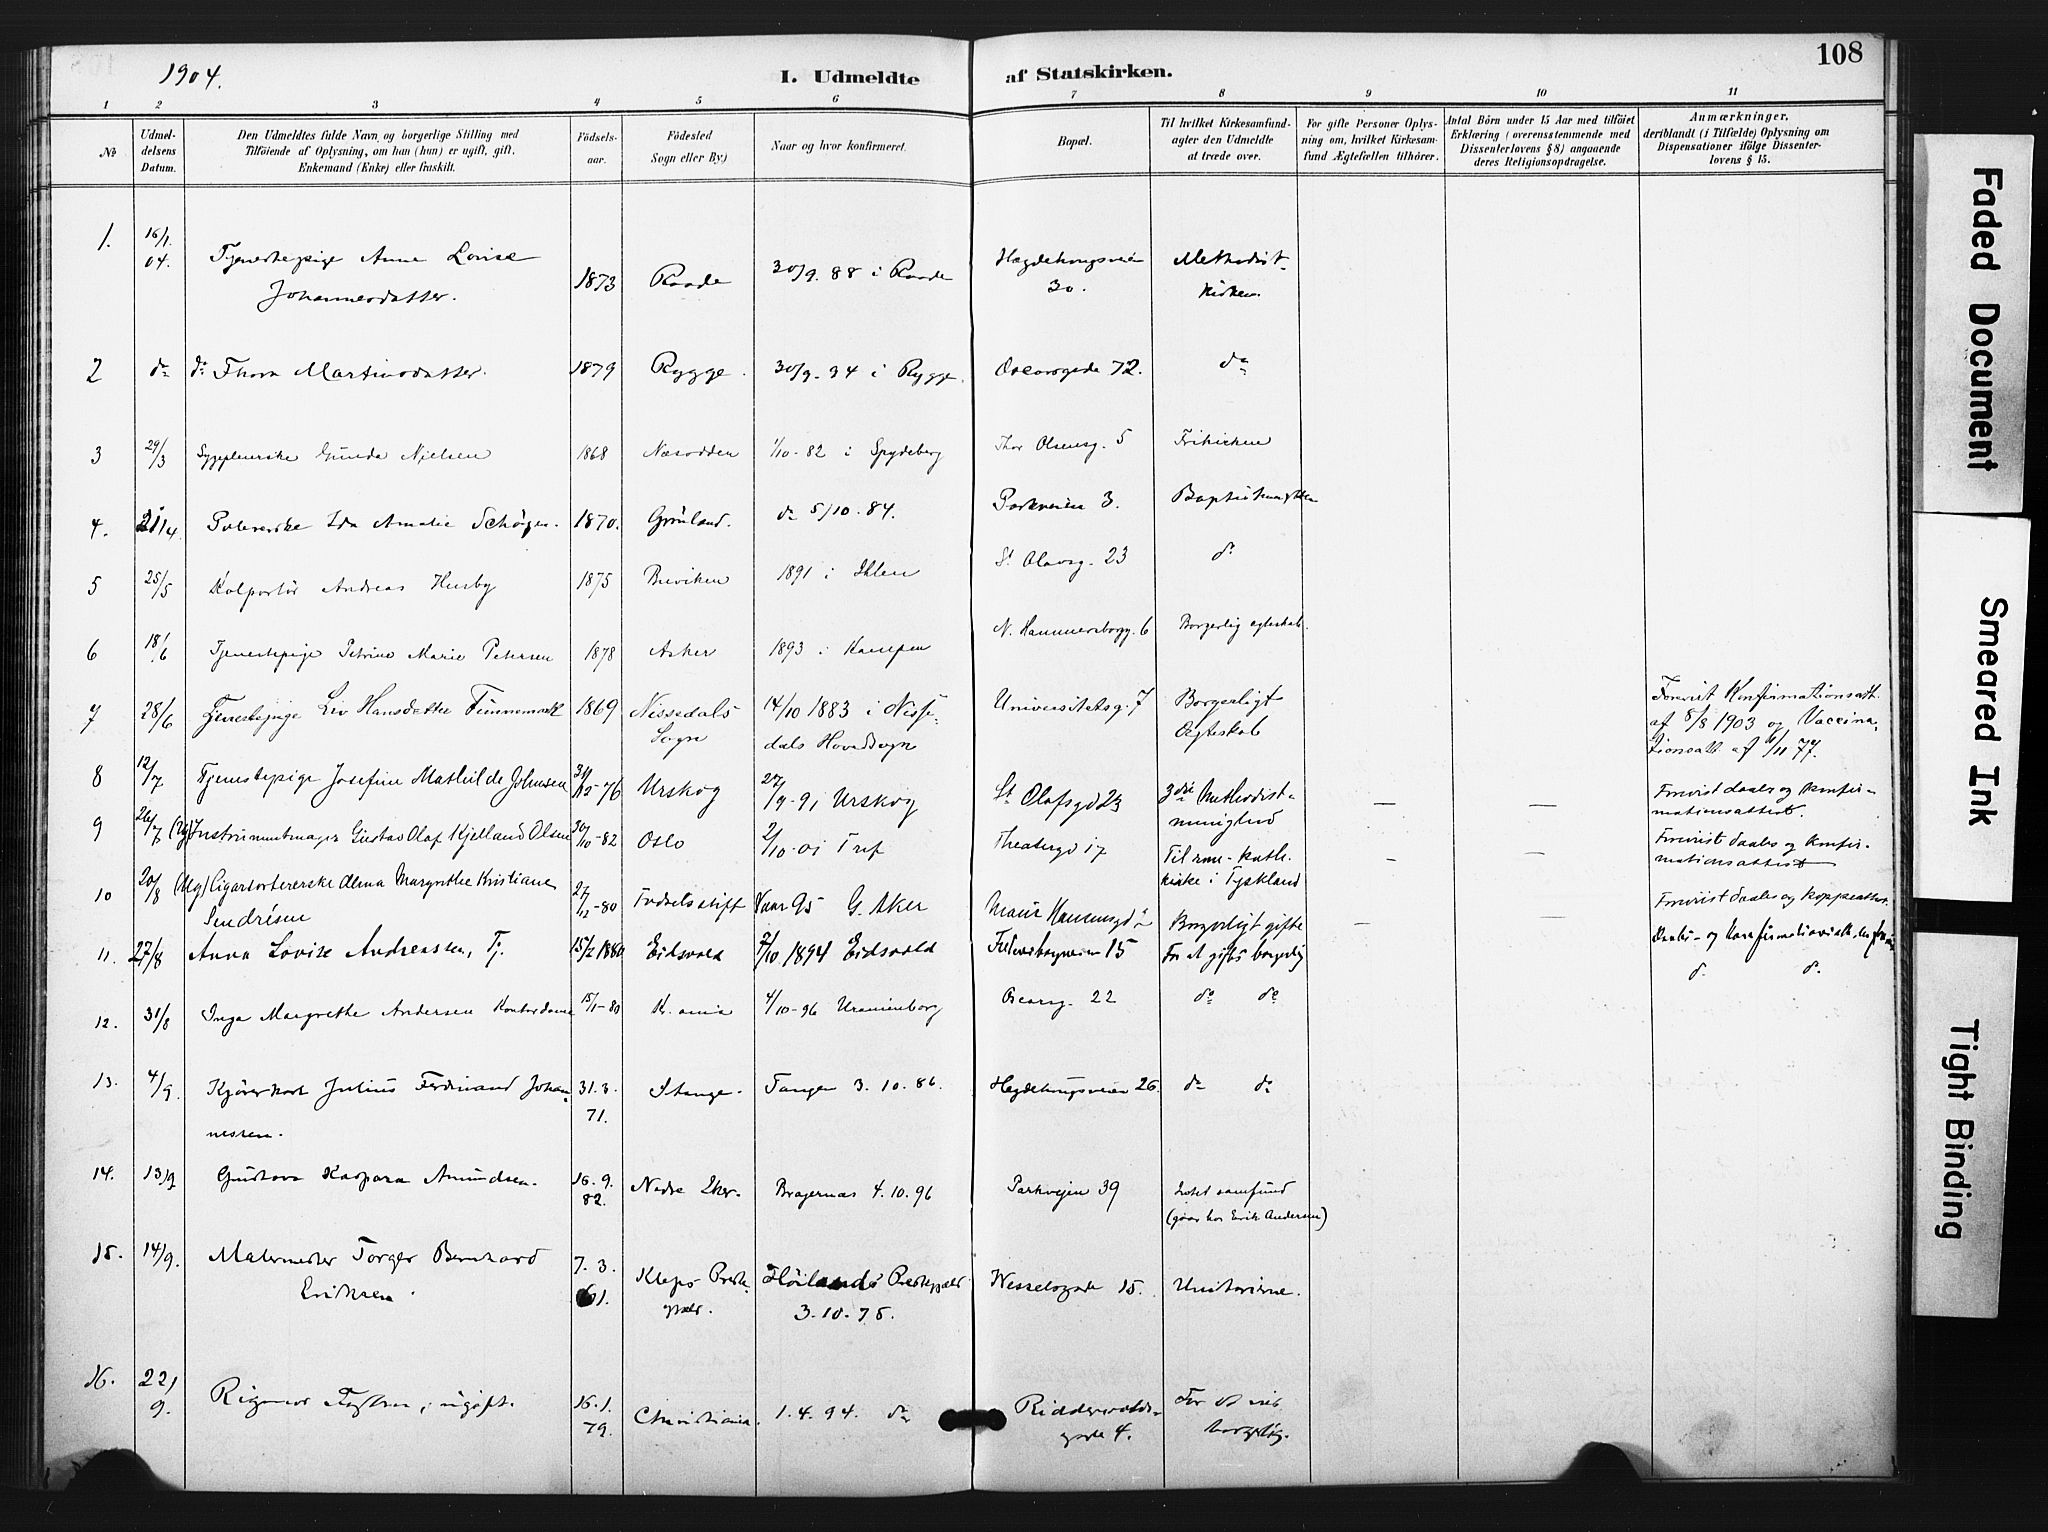 1904.
I. Udmeldte af Statskirken.
108
1 2 3 4 5 6 7 8 9 10 11
№
Udmeldelsens Datum.
Den Udmeldtes fulde Navn og borgerlige Stilling med
Tilföiende af Oplysning, om han (hun) er ugift, gift,
Enkemand (Enke) eller fraskilt.
Födselsaar.
Födested
Sogn eller By.)
Naar og hvor konfirmeret.
Bopæl.
Til hvilket Kirkesamfund
agter den Udmeldte
at træde over.
For gifte Personer Oplysning om, hvilket Kirkesamfund Ægtefællen tilhörer.
Antal Börn under 15 Aar med tilföiet
Erklæring (overensstemmende med
Dissenterlovens § 8) angaaende
deres Religionsopdragelse.
Anmærkninger,
deriblandt (i Tilfælde) Oplysning om
Dispensationer ifölge Dissenterlovens § 15.
1. 16/1. 04. Tjenestepige Anne Lovise Johannesdatter. 1873 Raade 30/9. 88 i Raade Hægdehougsveien 30. Methodistkirken.
2 do do Thora Martinsdatter. 1879 Rygge. 30/9. 94 i Rygge. Oscarsgade 72. do
3 29/3 Sygepleierske Gunda Nielsen 1868 Næsodden 1/10-82 i Spydeberg Thor Olsensg. 5 Frikirken
4. 21/4 Ida Amalie 1870. Grønland. do 5/10. 84. Parkveien 3.
5 25/5 Kolportør Andreas Husby 1875 Breviken 1891 i Ihlen St Olavsg. 23 do
6 18/6 Tjenestepige Petrine Marie Petersen 1878 Asker 1893 i Kampen N. Hammersborgg. 6 Borgerlig egteskab.
7 28/6 Tjenestepige Liv Hansdatter Tinnemark 1869 Nissedals Sogn 14/10 1883 i Nissedals Hovedsogn Universitetsg. 7 Borgerligt Ægteskab Forevist Konfirmationsatt. af 8/8 1903 og Vaccinationsatt. af /11 77.
8 12/7 Tjenestepige Josefine Mathilde Johnsen -76 Urskog 27/9-91 Urskog St Olafsgd 23 3die Methodistmenighed — — Forevist daabs og konfirmationsattest.
9 26/7 (Ug) Instrumentmager Gustav Olaf Kjelland Olsen 30/10-82 Oslo 2/10-01 Tref Theatergd 17 Til rom-kath. kirke i Tyskland - - Forevist daabs og konfirmationsattest
10 20/8 (Ug) Cigarsortererske Alma Margrethe Kristiane 27/12-80 Fødselsstift Vaar 95 G. Aker Borgerligt gifte — — Forevist daabs og koppeattest.
11. 27/8 Anna Lovise Andreassen, Tj. 15/2 1880 Eidsvold 7/10 1894 Eidsvold 15 For at giftes borgerlig Daabs- og konfirmationsatt.
12. 31/8 Inga Margrethe Andersen Kontordame 15/1-80 Kr.ania 4/10-96 Uranienborg Oscarsg. 22 do do d. d.
13. 4/9. Kjørekarl Julius Ferdinand Johannessen. 31.3. 71. Stange. Tangen 3.10.86. Hegdehougsveien 26. do do
14. 13/9 Gustava Kaspara Amundsen. 16.9. 82. Nedre Eker. Bragernæs 4.10.96 Parkvejen 39 Intet samfund (gaar hos Erik Andersen)
15. 14/9. Malermester Torger Bernhard Eriksen. 7.3. 61. Kleps Prestegjæld. Høilands Prestegjæld 3.10.75. Wesselsgade 15. Unitarerne.
16. 22/9. Rigmor ugift. 16.1. 79. Christiania. 1.4.94. do Ridderwoldsgade 4. For borgerlig.
Faded Document
Smeared Ink
Tight Binding